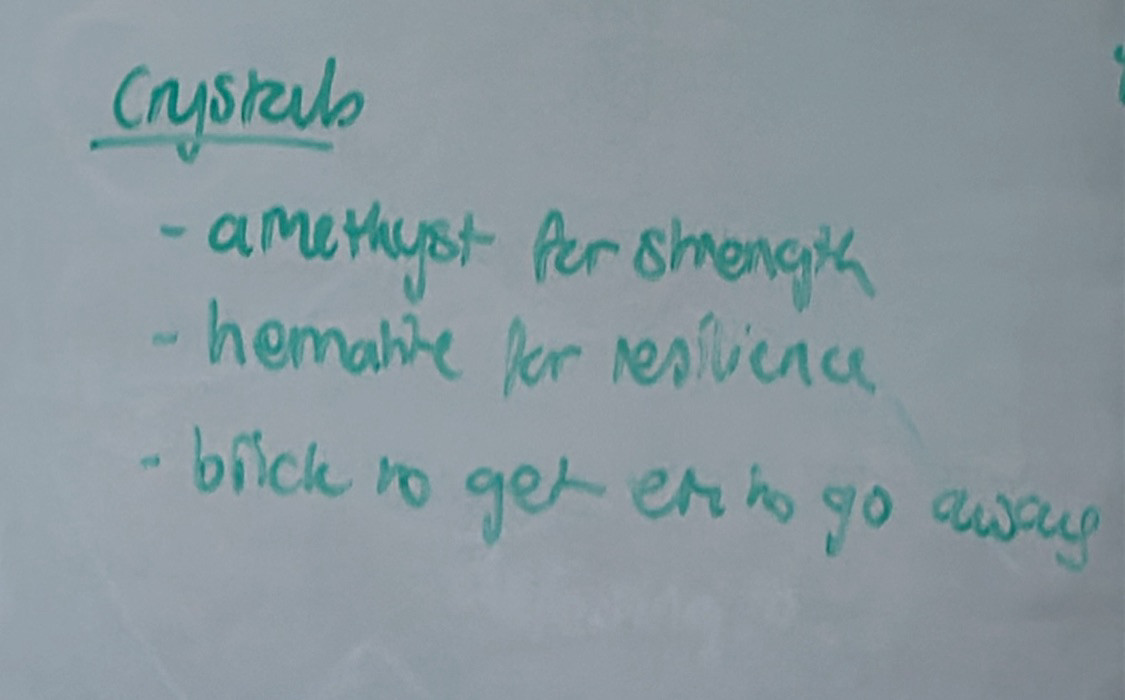 Crystals
- amethyst for strength
- hematite for resilience
- brick to get em to go away